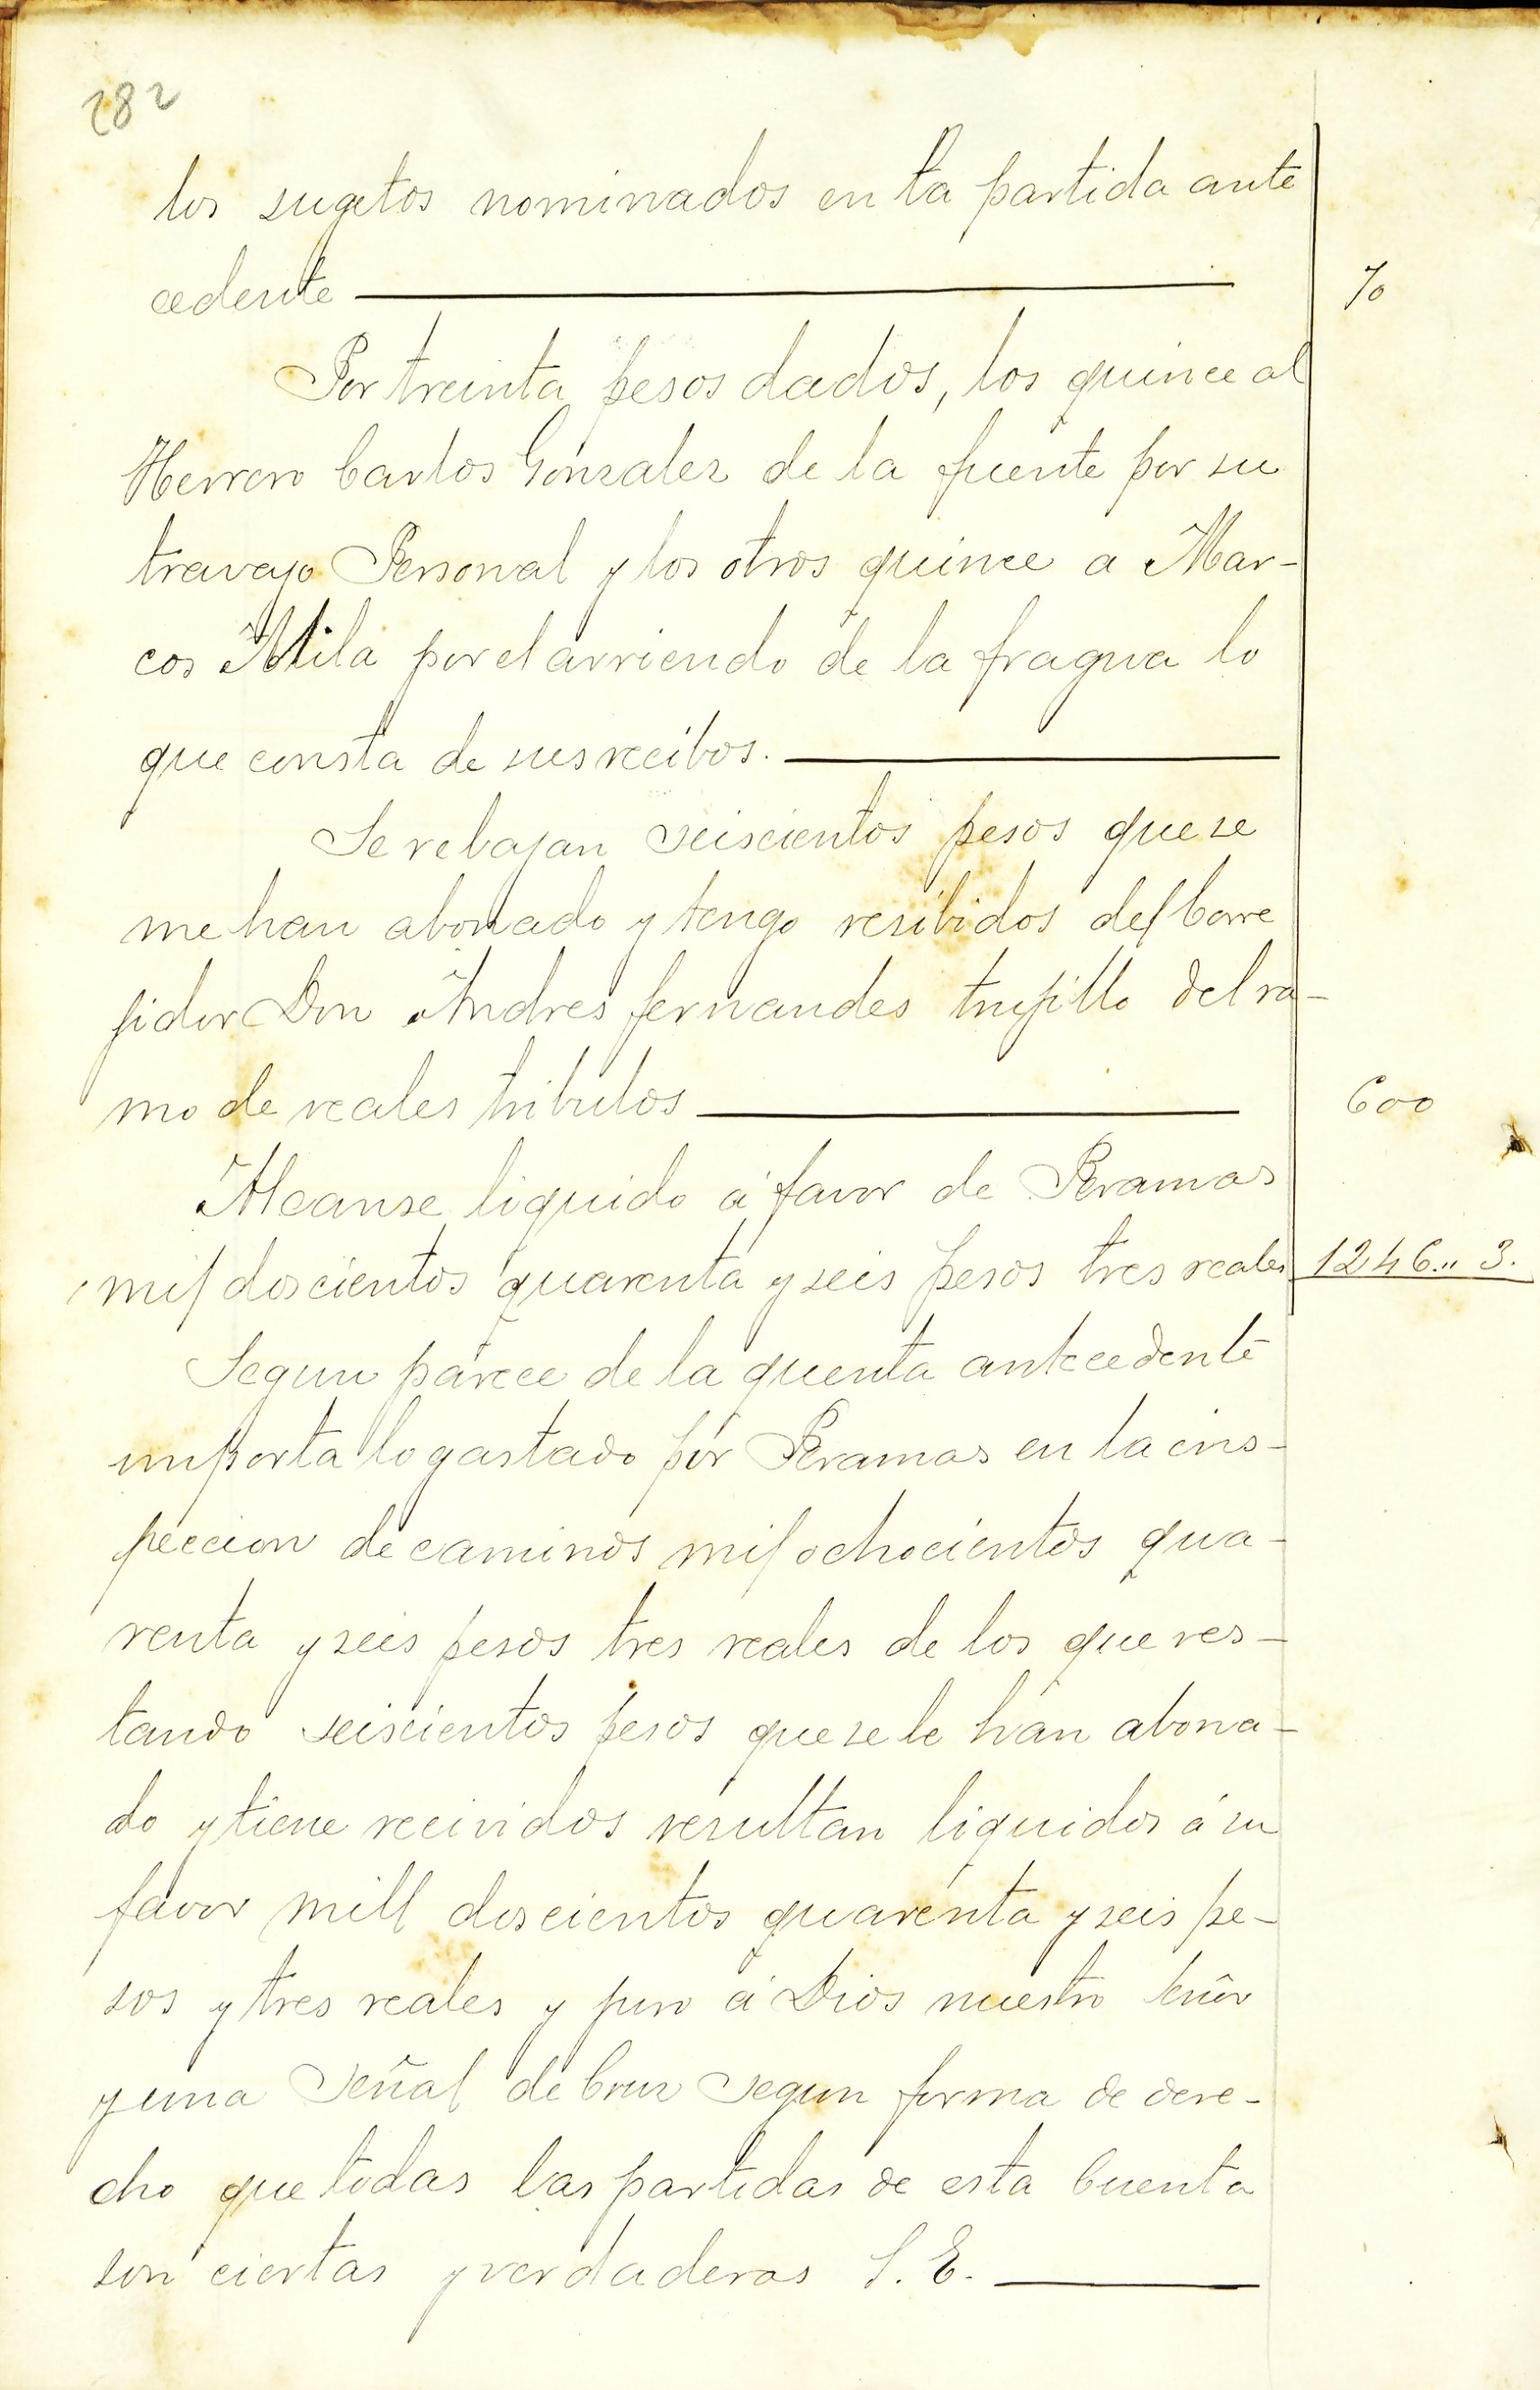 282
los sugetos nominados en la partida ante
cedente 70
Por treinta pesos dados, los quince al
Herrero Carlos Gonzalez de la fuente por su
travajo Personal y los otros quince a Mar-
cos Mila por el arriendo de la fragua lo
que consta de sus recibos.
Se rebajan seiscientos pesos que se
me han abonado y tengo resibidos del Corre
jidor Don Andres fernandes trujillo del ra-
mo de reales tributos 600
Alcanse liquido á favor de Peramas
mil doscientos quarenta y seis pesos tres reales 1246.. 3.
Segun parece de la quenta antecedente
importa lo gastado por Peramas en la ins-
peccion de caminos mil ochocientos qua-
renta y seis pesos tres reales de los que res-
tando seiscientos pesos que se le han abona-
do y tiene recividos resultan liquidos á su
favor mill doscientos quarenta y seis pe-
sos y tres reales y juro á Dios nuestro señor
y una Señal de Cruz segun forma de dere-
cho que todas las partidas de esta Cuenta
son ciertas y verdaderas S. E.